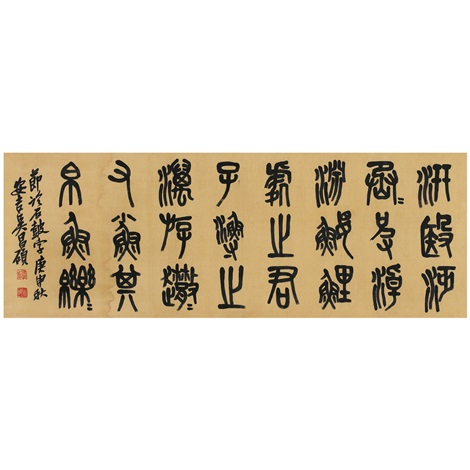 汧殹沔
丞皮淖
淵鰋鯉
處之君
子漁之
澫斿
又小魚其
帛魚皪
節臨石鼓字庚申秋
安吉吳昌碩